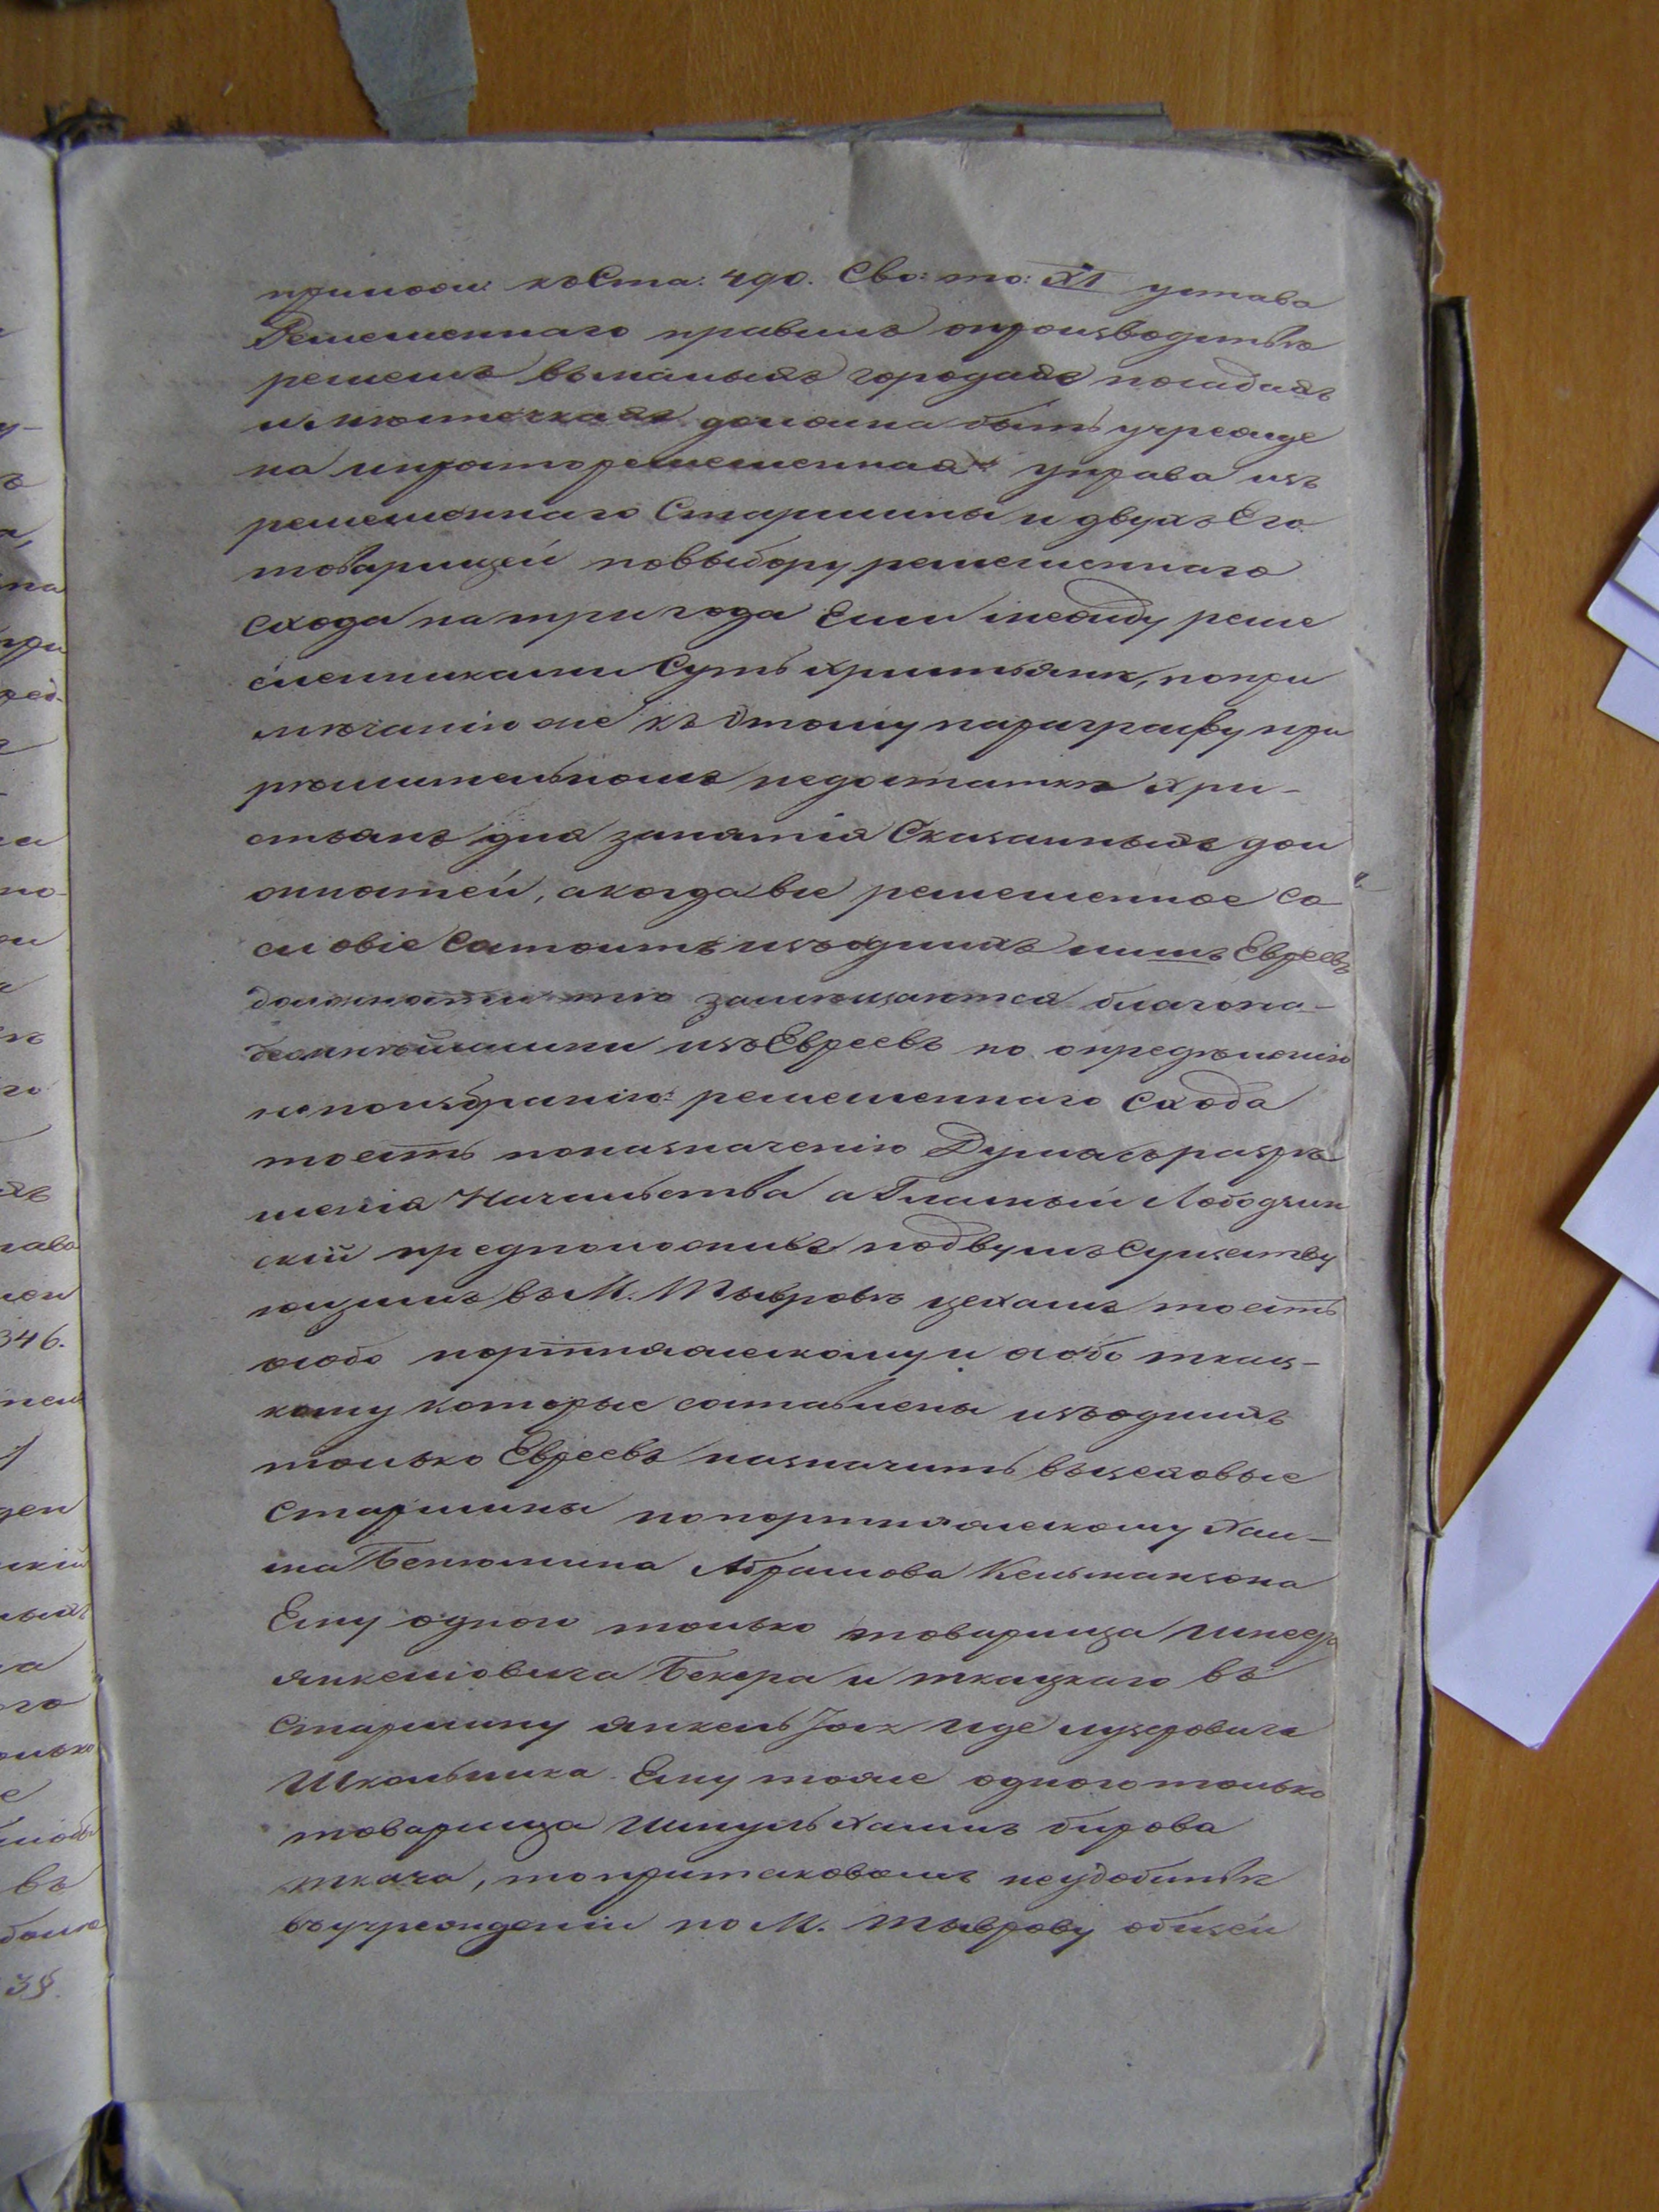 прилож: къ Ста: 490. Сво: то: XI устава
Ремесленнаго правилъ опроизводителѣ
ремеслъ въ малыхъ городахъ посадахъ
и мѣстечкахъ должна быть учрежде
на упрощоремесленная управа изъ
ремесленнаго Старшины и двухъ Его
товарищей повыбору ремесленнаго
схода на три года Если между реме
сленниками Суть христьяни, по при
мѣчанію же къ Этому параграфу при
рѣшительномъ недостаткѣ хри-
стьянъ для занятія Сказанныхъ дол
жностей, а когда все ремесленное со
словіе Состоитъ изъ однихъ лишь Евреевъ
должности тѣ замѣщаются благона-
дежнѣйшими изъ Евреевъ по опредѣленію
непоизбранію ремесленнаго Схода
тоесть поназначенію Думы съ разрѣ
шенія Начальства а Гласный Лободзин
скій предположивъ подвумъ Существу
ющимъ въ М. Тывровѣ цехамъ тоесть
особо портняжескому и особо ткац-
кому которые составлены изъ однихъ
только Евреевъ назначить въ цеховые
Старшины попортняжескому Хаи-
ма Бенюмина Абрамова Кельманзона
Ему одного только товарища Шнеера
Янкелiовича Бекера и ткацкаго въ
Старшину Янкель Іось Иделузровича
Школьника Ему тоже одного только
товарища Шмуль Хаимъ бирова
ткача, то притаковомъ неудобствѣ
въ учрежденіи по М. Тыврову общей
346.